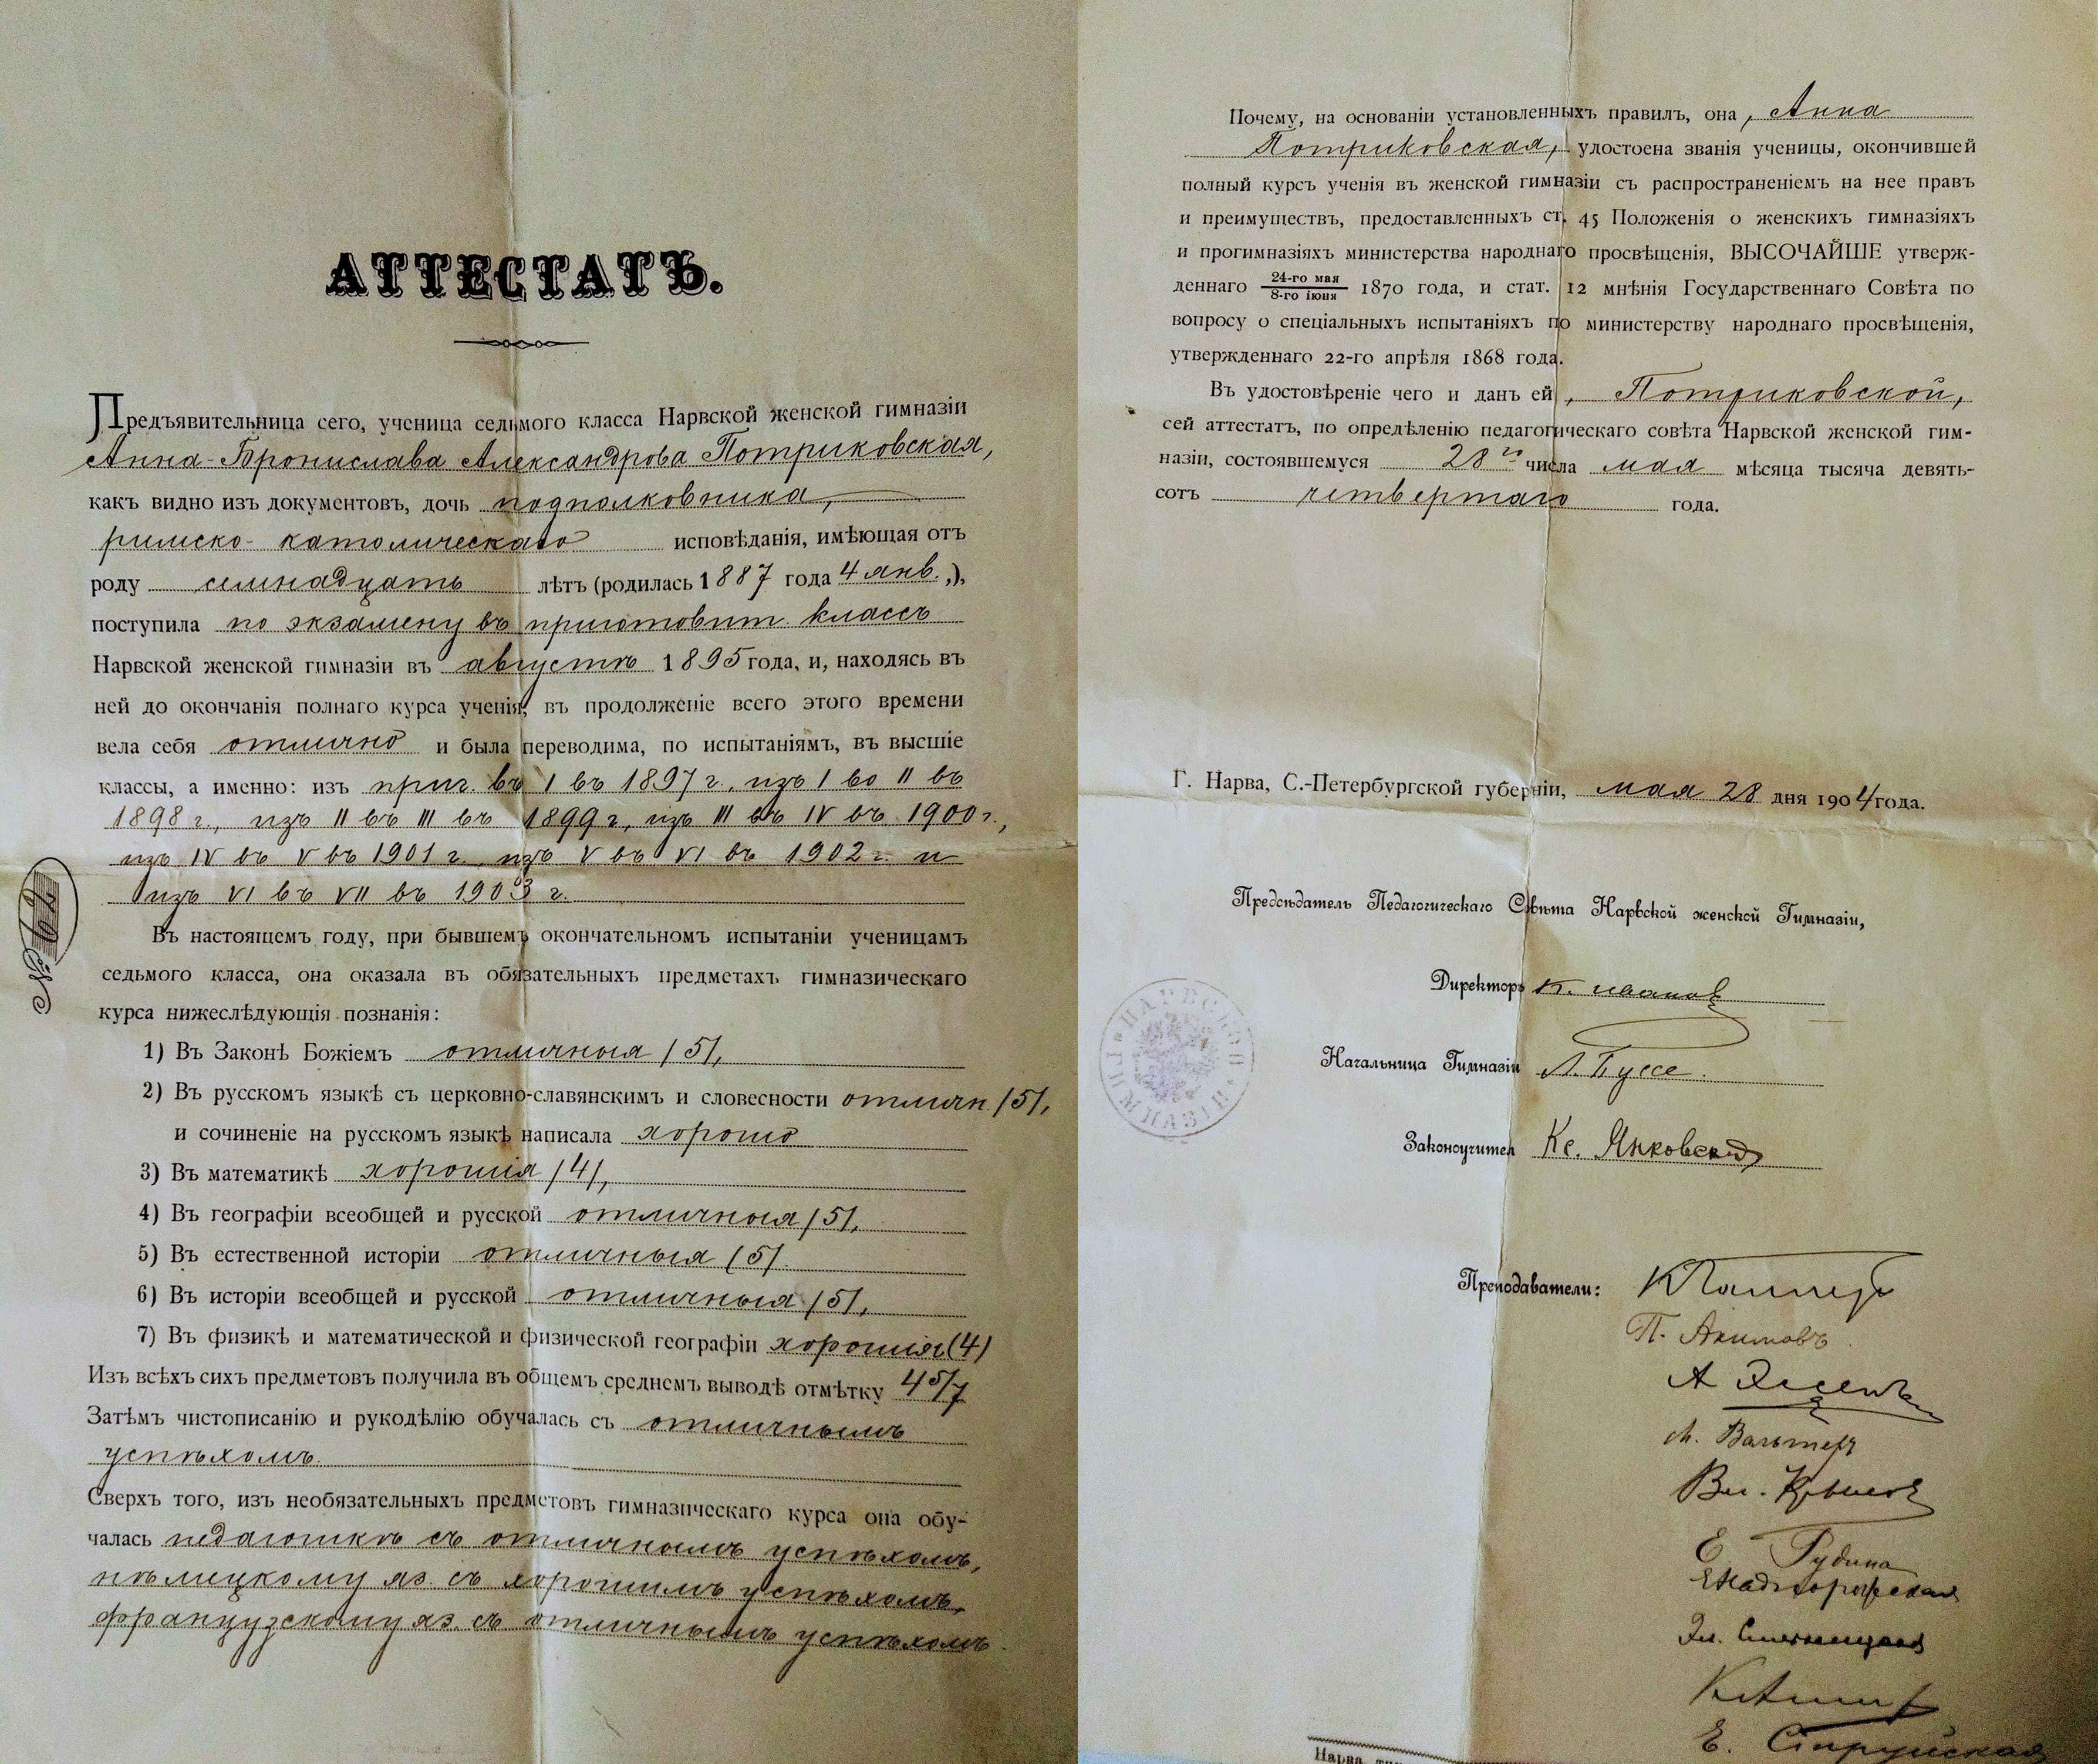 АТТЕСТАТЪ.
Предъявительница сего, ученица седьмого класса Нарвской женской гимназіи
Анна-Бронислава Александрова Потриковская,
какъ видно изъ документовъ, дочь подполковника,
римско-католическаго исповѣданія, имѣющая отъ
роду семнадцать лѣтъ (родилась 1887 года 4 янв.,),
поступила по экзамену въ приготовит. классъ
Нарвской женской гимназіи въ августѣ 1895 года, и, находясь въ
ней до окончанія полнаго курса ученія, въ продолженіе всего этого времени
вела себя отлично и была переводима, по испытаніямъ, въ высшіе
классы, а именно: изъ приг. въ I въ 1897 г., изъ I во II въ
1898 г., изъ II въ III въ 1899 г., изъ III въ IV въ 1900 г.,
изъ IV въ V въ 1901 г. изъ V въ VI въ 1902 г. и
изъ VI въ VII въ 1903 г.
№
Въ настоящемъ году, при бывшемъ окончательномъ испытаніи ученицамъ
седьмого класса, она оказала въ обязательныхъ предметахъ гимназическаго
курса нижеслѣдующія познанія:
1) Въ Законѣ Божіемъ отличныя /5/,
2) Въ русскомъ языкѣ съ церковно-славянскимъ и словесности отличн. /5/,
и сочиненіе на русскомъ языкѣ написала хорошо
3) Въ математикѣ хорошія /4/,
4) Въ географіи всеобщей и русской отличныя /5/,
5) Въ естественной исторіи отличныя /5/.
6) Въ исторіи всеобщей и русской отличныя /5/,
7) Въ физикѣ и математической и физической географіи хорошія (4)
Изъ всѣхъ сихъ предметовъ получила въ общемъ среднемъ выводѣ отмѣтку 4 5/7
Затѣмъ чистописанію и рукодѣлію обучалась съ отличнымъ
успѣхомъ.
Сверхъ того, изъ необязательныхъ предметовъ гимназическаго курса она обу-
чалась педагогикѣ съ отличнымъ успѣхомъ,
нѣмецкому яз. съ хорошимъ успѣхомъ,
французскому яз. съ отличнымъ успѣхомъ.
Почему, на основаніи установленныхъ правилъ, она, Анна
Потриковская, удостоена званія ученицы, окончившей
полный курсъ ученія въ женской гимназіи съ распространеніемъ на нее правъ
и преимуществъ, предоставленныхъ ст. 45 Положенія о женскихъ гимназіяхъ
и прогимназіяхъ министерства народнаго просвѣщенія, ВЫСОЧАЙШЕ утверж-
деннаго 24-го мая/8-го іюня 1870 года, и стат. 12 мнѣнія Государственнаго Совѣта по
вопросу о спеціальныхъ испытаніяхъ по министерству народнаго просвѣщенія,
утвержденнаго 22-го апрѣля 1868 года.
Въ удостовѣреніе чего и данъ ей, Потриковской,
сей аттестатъ, по опредѣленію педагогическаго совѣта Нарвской женской гим-
назіи, состоявшемуся 28го числа мая мѣсяца тысяча девять-
сотъ четвертаго года.
Г. Нарва, С.-Петербургской губерніи, мая 28 дня 1904 года.
Предсѣдатель Педагогическаго Совѣта Нарвской женской Гимназіи,
Директоръ К. Ивановъ
Начальница Гимназіи Л. Буссе.
Законоучител Кс. Янковскій
НАРВСКОЙ ГИМНАЗІИ
Преподаватели:
П. Акимовъ
М. Вальтеръ
Е. Гудина
Е. Надпорожская
Нарва, тип.